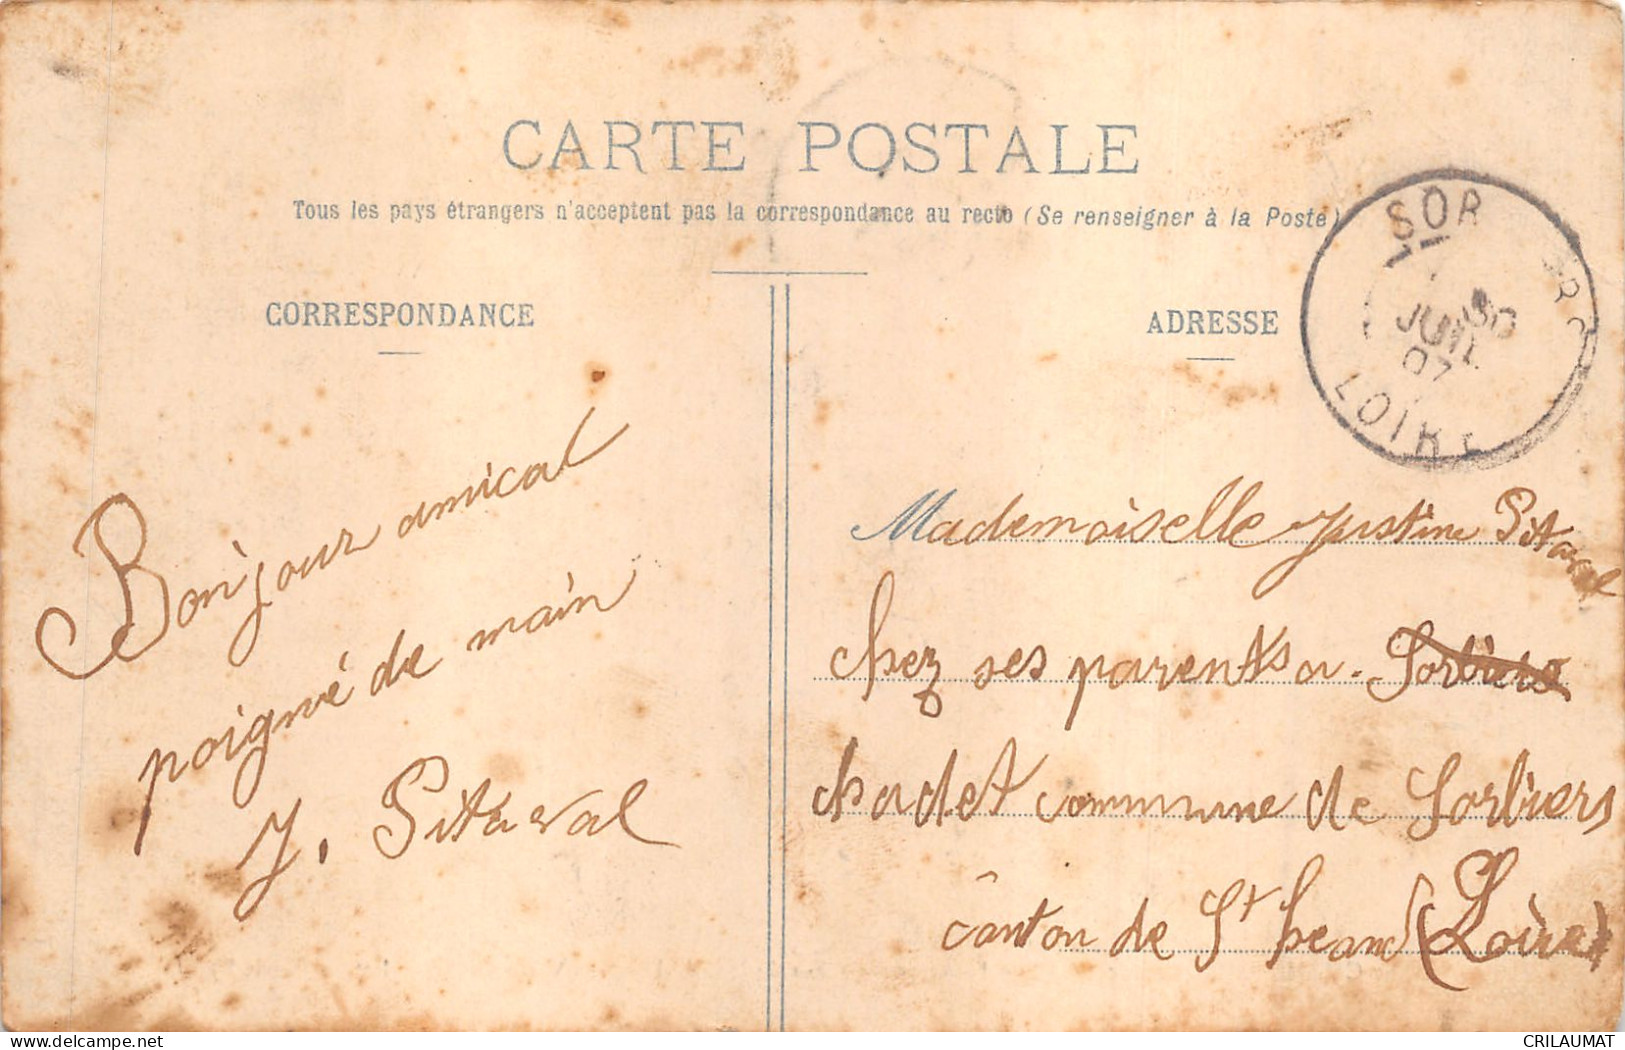 CARTE POSTALE
Tous les pays étrangers n'acceptent pas la correspondance au recto (Se renseigner à la Poste)
CORRESPONDANCE
ADRESSE
SOR
JUIL
07
LOIRE
Bonjour amical
poigné de main
J. Pitaval
Mademoiselle Justine Pitaval
Chez ses parents a. Sorbiers
chadet commune de Sorbiers
canton de St heand (Loire)
delcampe.net
CRILAUMAT